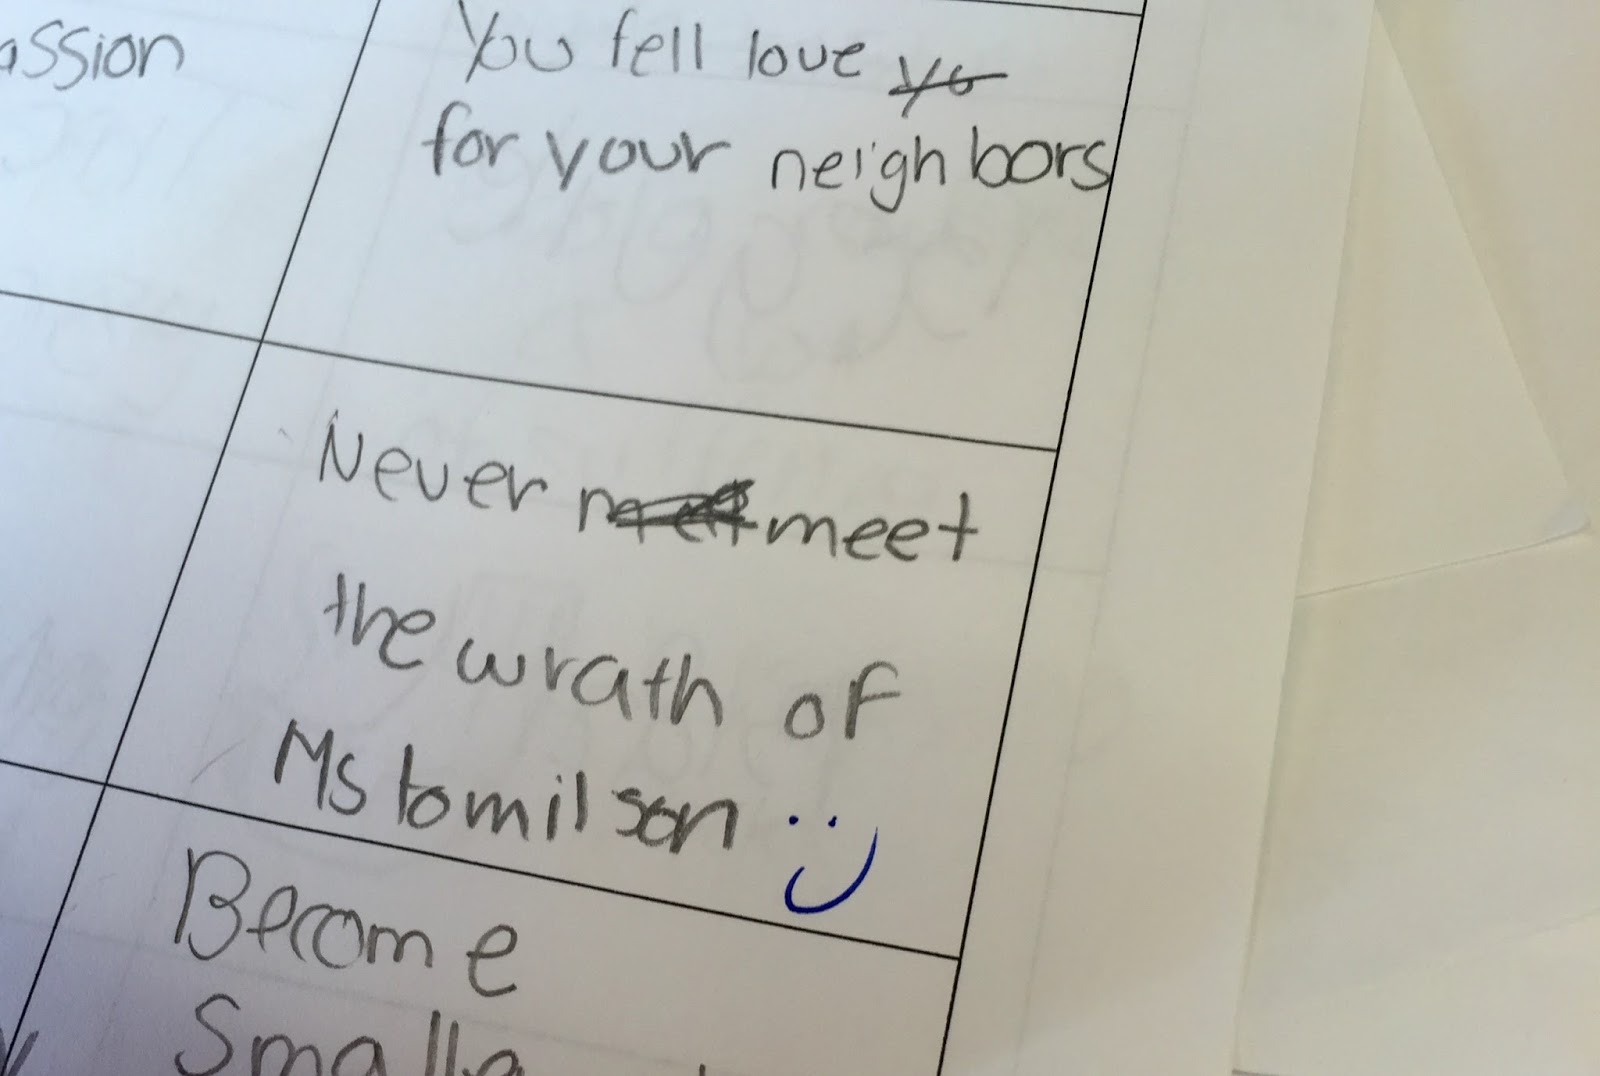 assion
You fell love
for your neighbors
Never meet
the wrath of
Ms tomilson
Become